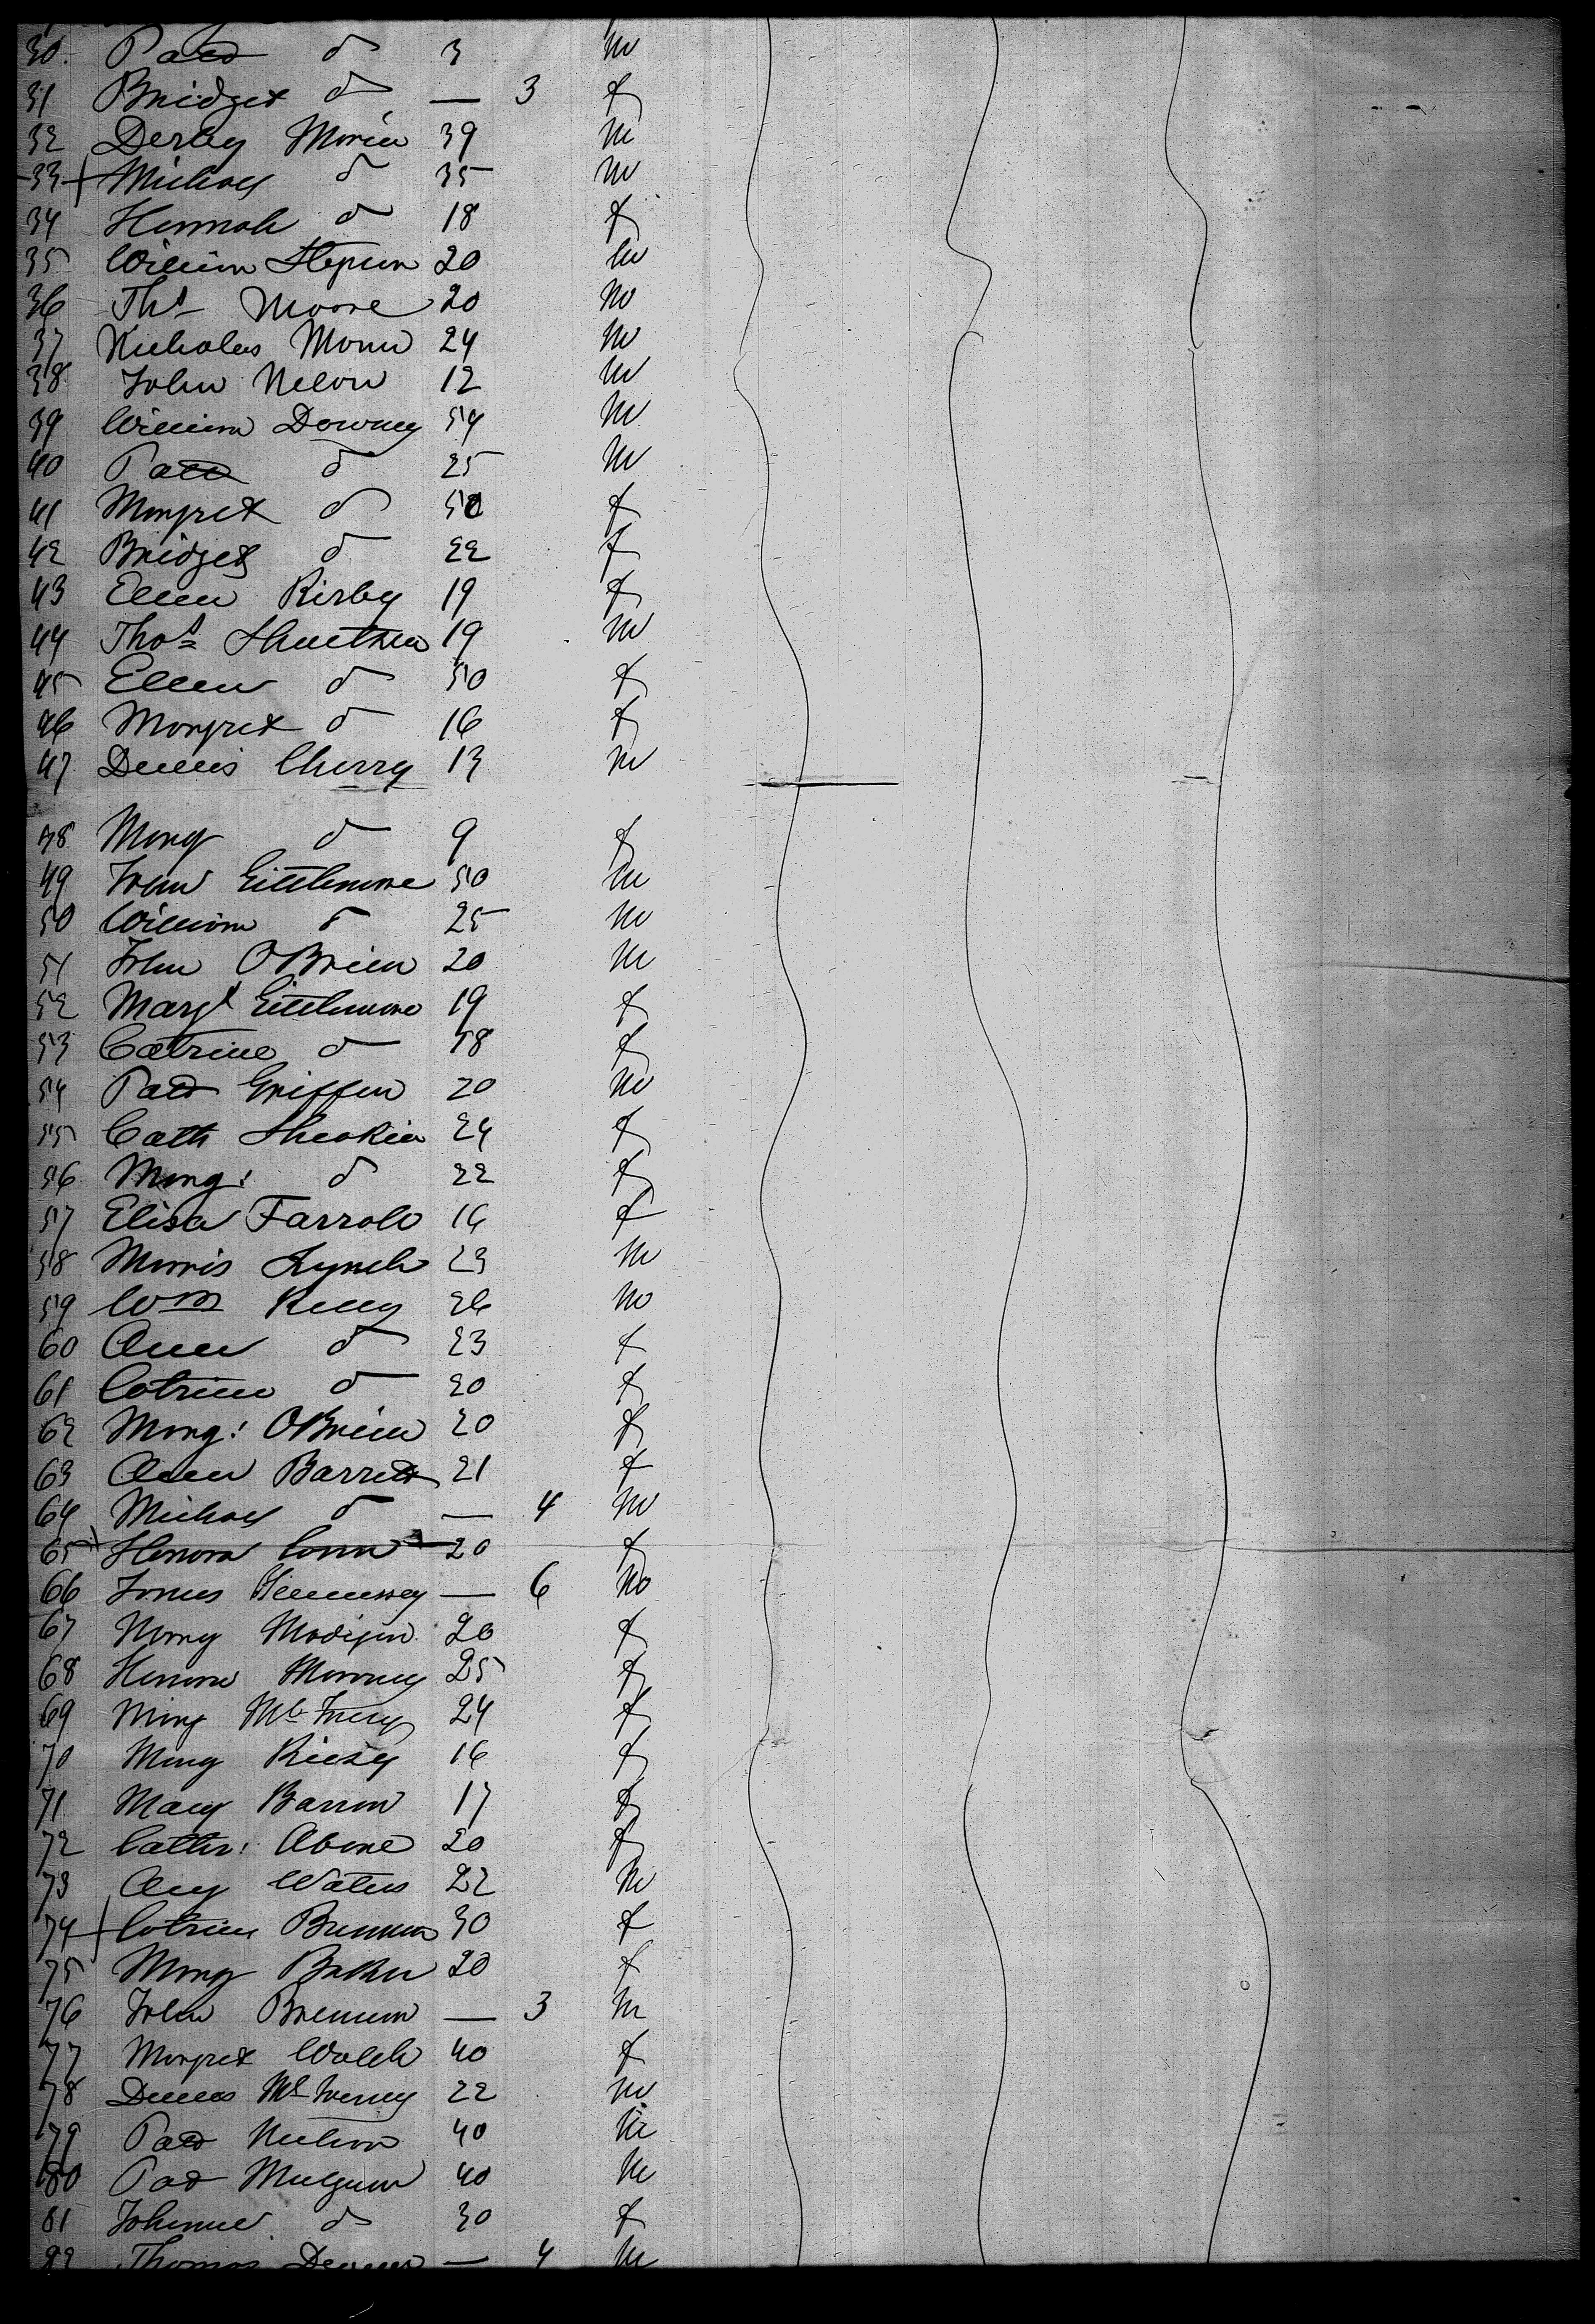 30. Patt do 3 m
31 Bridget do — 3 f
32 Derby 39 m
33 Michael do 35 m
34 Hannah do 18 f
35 William 20 m
36 Thos Moore 20 m
37 Nicholas 24 m
38 John 12 m
39 William Downey 54 m
40 Patt do 25 m
41 Margret do 50 f
42 Bridget do 22 f
43 Ellen Kirby 19 f
44 Thos 19 m
45 Ellen do 50 f
46 Margret do 16 f
47 Dennis Cherry 13 m
48 Mary do 9 f
49 John 50 m
50 William do 25 m
51 John OBrien 20 m
52 Margt 19 f
53 Catrine do 18 f
54 Patt Griffen 20 m
55 Cath 24 f
56 Marg: do 22 f
57 Elisa Farroll 16 f
58 Morris Lynch 23 m
59 Wm Kelly 26 m
60 Ann do 23 f
61 Catrine do 20 f
62 Marg: OBrien 20 f
63 Ellen Barrett 21 f
64 Michael do — 4 m
65 Honora 20 f
66 James Hennessey — 6 m
67 Mary Madigan 20 f
68 Honora 25 f
69 Mary 24 f
70 Mary 16 f
71 Mary Barron 17 f
72 Cathr: 20 f
73 Waters 22 m
74 Catrine Brennan 30 f
75 Mary Baker 20 f
76 John Brennan — 3 m
77 Margret Walsh 40 f
78 Dennis 22 m
79 Patt 40 m
80 Pat 40 m
81 do 30 f
82 Thomas — 4 m